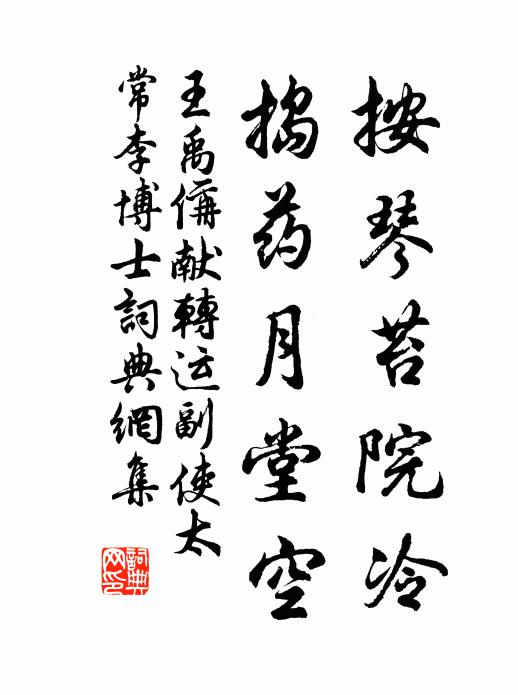 按琴苔院冷
捣药月堂空
王禹偁献轉运副使太
常李博士詞典網集
詞典網印